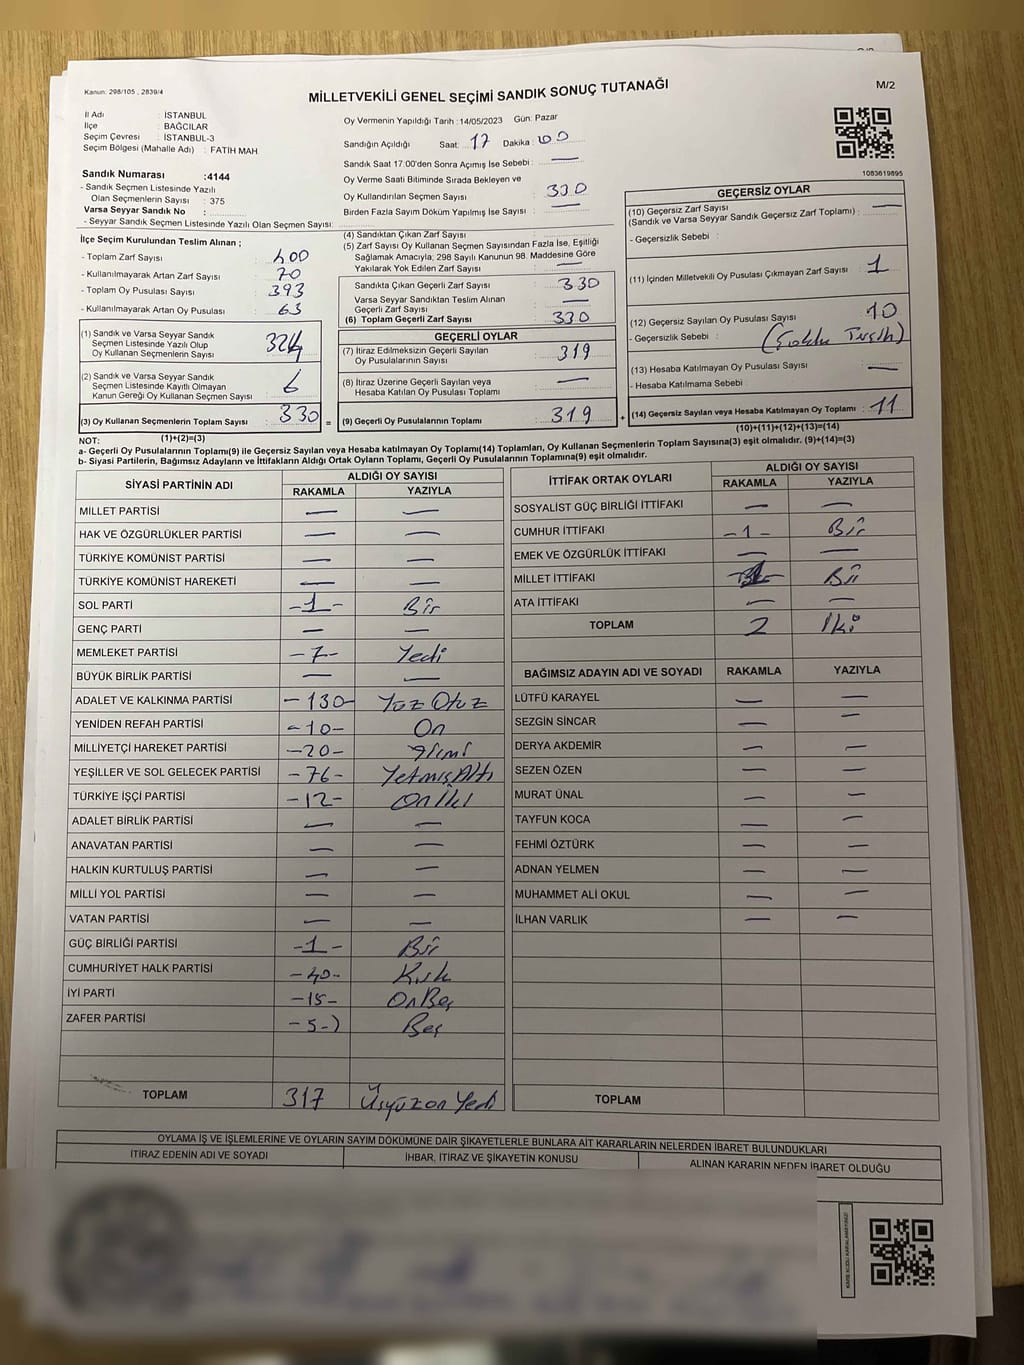 Kanun: 298/105 , 2839/4
MİLLETVEKİLİ GENEL SEÇİMİ SANDIK SONUÇ TUTANAĞI
M/2
İl Adı : İSTANBUL
İlçe : BAĞCILAR
Seçim Çevresi : İSTANBUL-3
Seçim Bölgesi (Mahalle Adı) : FATİH MAH
Oy Vermenin Yapıldığı Tarih :14/05/2023 Gün: Pazar
Sandığın Açıldığı Saat: 17 Dakika: 00
Sandık Saat 17:00'den Sonra Açımış İse Sebebi : —
Oy Verme Saati Bitiminde Sırada Bekleyen ve
Oy Kullandırılan Seçmen Sayısı : 330
Birden Fazla Sayım Döküm Yapılmış İse Sayısı : —
1083619895
Sandık Numarası :4144
- Sandık Seçmen Listesinde Yazılı
Olan Seçmenlerin Sayısı : 375
Varsa Seyyar Sandık No :
- Seyyar Sandık Seçmen Listesinde Yazılı Olan Seçmen Sayısı:
İlçe Seçim Kurulundan Teslim Alınan ;
- Toplam Zarf Sayısı : 400
- Kullanılmayarak Artan Zarf Sayısı : 70
- Toplam Oy Pusulası Sayısı : 393
- Kullanılmayarak Artan Oy Pusulası : 63
(1) Sandık ve Varsa Seyyar Sandık
Seçmen Listesinde Yazılı Olup
Oy Kullanan Seçmenlerin Sayısı : 324
(2) Sandık ve Varsa Seyyar Sandık
Seçmen Listesinde Kayıtlı Olmayan
Kanun Gereği Oy Kullanan Seçmen Sayısı : 6
(3) Oy Kullanan Seçmenlerin Toplam Sayısı : 330
(1)+(2)=(3)
(4) Sandıktan Çıkan Zarf Sayısı :
(5) Zarf Sayısı Oy Kullanan Seçmen Sayısından Fazla İse, Eşitliği
Sağlamak Amacıyla; 298 Sayılı Kanunun 98. Maddesine Göre
Yakılarak Yok Edilen Zarf Sayısı : —
Sandıkta Çıkan Geçerli Zarf Sayısı : 330
Varsa Seyyar Sandıktan Teslim Alınan
Geçerli Zarf Sayısı : —
(6) Toplam Geçerli Zarf Sayısı : 330
GEÇERLİ OYLAR
(7) İtiraz Edilmeksizin Geçerli Sayılan
Oy Pusulalarının Sayısı : 319
(8) İtiraz Üzerine Geçerli Sayılan veya
Hesaba Katılan Oy Pusulası Toplamı : —
= (9) Geçerli Oy Pusulalarının Toplamı : 319
GEÇERSİZ OYLAR
(10) Geçersiz Zarf Sayısı
(Sandık ve Varsa Seyyar Sandık Geçersiz Zarf Toplamı) : —
- Geçersizlik Sebebi :
(11) İçinden Milletvekili Oy Pusulası Çıkmayan Zarf Sayısı : 1
(12) Geçersiz Sayılan Oy Pusulası Sayısı : 10
- Geçersizlik Sebebi : (Çoklu Tercih)
(13) Hesaba Katılmayan Oy Pusulası Sayısı : —
- Hesaba Katılmama Sebebi :
+ (14) Geçersiz Sayılan veya Hesaba Katılmayan Oy Toplamı : 11
(10)+(11)+(12)+(13)=(14)
NOT:
a- Geçerli Oy Pusulalarının Toplamı(9) ile Geçersiz Sayılan veya Hesaba katılmayan Oy Toplamı(14) Toplamları, Oy Kullanan Seçmenlerin Toplam Sayısına(3) eşit olmalıdır. (9)+(14)=(3)
b- Siyasi Partilerin, Bağımsız Adayların ve İttifakların Aldığı Ortak Oyların Toplamı, Geçerli Oy Pusulalarının Toplamına(9) eşit olmalıdır.
SİYASİ PARTİNİN ADI ALDIĞI OY SAYISI
RAKAMLA YAZIYLA
MİLLET PARTİSİ — —
HAK VE ÖZGÜRLÜKLER PARTİSİ — —
TÜRKİYE KOMÜNİST PARTİSİ — —
TÜRKİYE KOMÜNİST HAREKETİ — —
SOL PARTİ -1- Bir
GENÇ PARTİ — —
MEMLEKET PARTİSİ -7- Yedi
BÜYÜK BİRLİK PARTİSİ — —
ADALET VE KALKINMA PARTİSİ -130- Yüz Otuz
YENİDEN REFAH PARTİSİ -10- On
MİLLİYETÇİ HAREKET PARTİSİ -20- Yirmi
YEŞİLLER VE SOL GELECEK PARTİSİ -76- Yetmiş Altı
TÜRKİYE İŞÇİ PARTİSİ -12- On İki
ADALET BİRLİK PARTİSİ — —
ANAVATAN PARTİSİ — —
HALKIN KURTULUŞ PARTİSİ — —
MİLLİ YOL PARTİSİ — —
VATAN PARTİSİ — —
GÜÇ BİRLİĞİ PARTİSİ -1- Bir
CUMHURİYET HALK PARTİSİ -40- Kırk
İYİ PARTİ -15- On Beş
ZAFER PARTİSİ -5-) Beş
TOPLAM 317 Üçyüzon Yedi
İTTİFAK ORTAK OYLARI ALDIĞI OY SAYISI
RAKAMLA YAZIYLA
SOSYALİST GÜÇ BİRLİĞİ İTTİFAKI — —
CUMHUR İTTİFAKI -1- Bir
EMEK VE ÖZGÜRLÜK İTTİFAKI — —
MİLLET İTTİFAKI Bir
ATA İTTİFAKI — —
TOPLAM 2 İki
BAĞIMSIZ ADAYIN ADI VE SOYADI RAKAMLA YAZIYLA
LÜTFÜ KARAYEL — —
SEZGİN SİNCAR — —
DERYA AKDEMİR — —
SEZEN ÖZEN — —
MURAT ÜNAL — —
TAYFUN KOCA — —
FEHMİ ÖZTÜRK — —
ADNAN YELMEN — —
MUHAMMET ALİ OKUL — —
İLHAN VARLIK — —
TOPLAM
OYLAMA İŞ VE İŞLEMLERİNE VE OYLARIN SAYIM DÖKÜMÜNE DAİR ŞİKAYETLERLE BUNLARA AİT KARARLARIN NELERDEN İBARET BULUNDUKLARI
İTİRAZ EDENİN ADI VE SOYADI İHBAR, İTİRAZ VE ŞİKAYETİN KONUSU ALINAN KARARIN NEDEN İBARET OLDUĞU